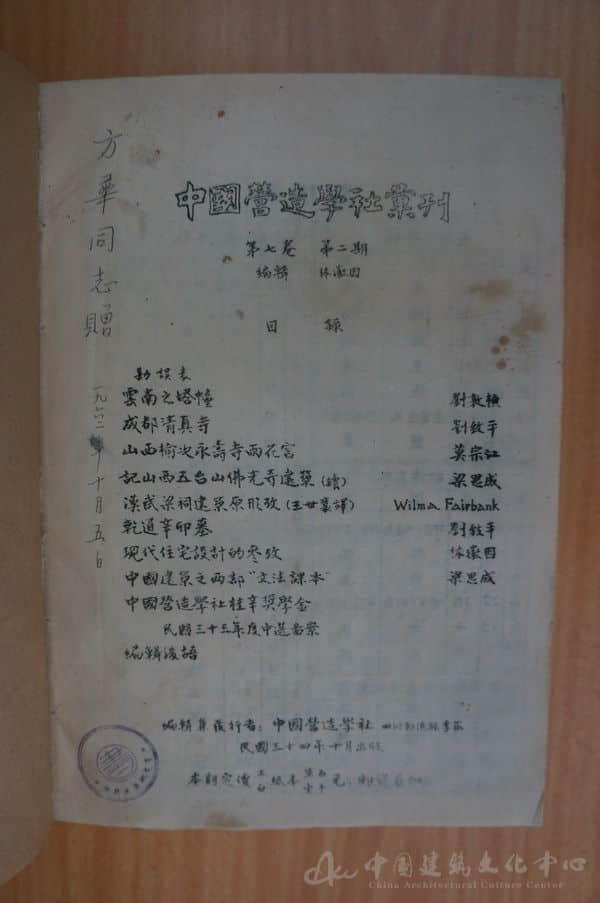 方華同志贈
一九六二年十月五日
中國營造學社彙刊
第七卷 第二期
編輯 林徽因
目錄
勘誤表
雲南之塔幢 劉敦楨
成都清真寺 劉致平
山西榆次永壽寺雨花宮 莫宗江
記山西五台山佛光寺建築(續) 梁思成
漢武梁祠建築原形攷(王世襄譯) Wilma Fairbank
乾道辛卯墓 劉致平
現代住宅設計的參攷 林徽因
中國建築之兩部“文法課本” 梁思成
中國營造學社桂辛奬學金
民國三十三年度中選圖案
編輯後語
編輯兼發行者:中國營造學社
民國三十四年十月出版
本期定價 紙本 元
中国建筑文化中心
China Architectural Culture Center